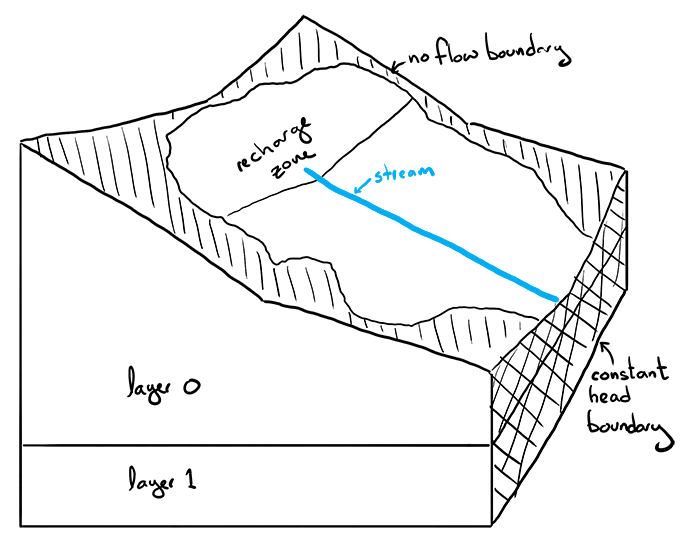 no flow boundary
recharge
zone
stream
constant
head
boundary
layer 0
layer 1